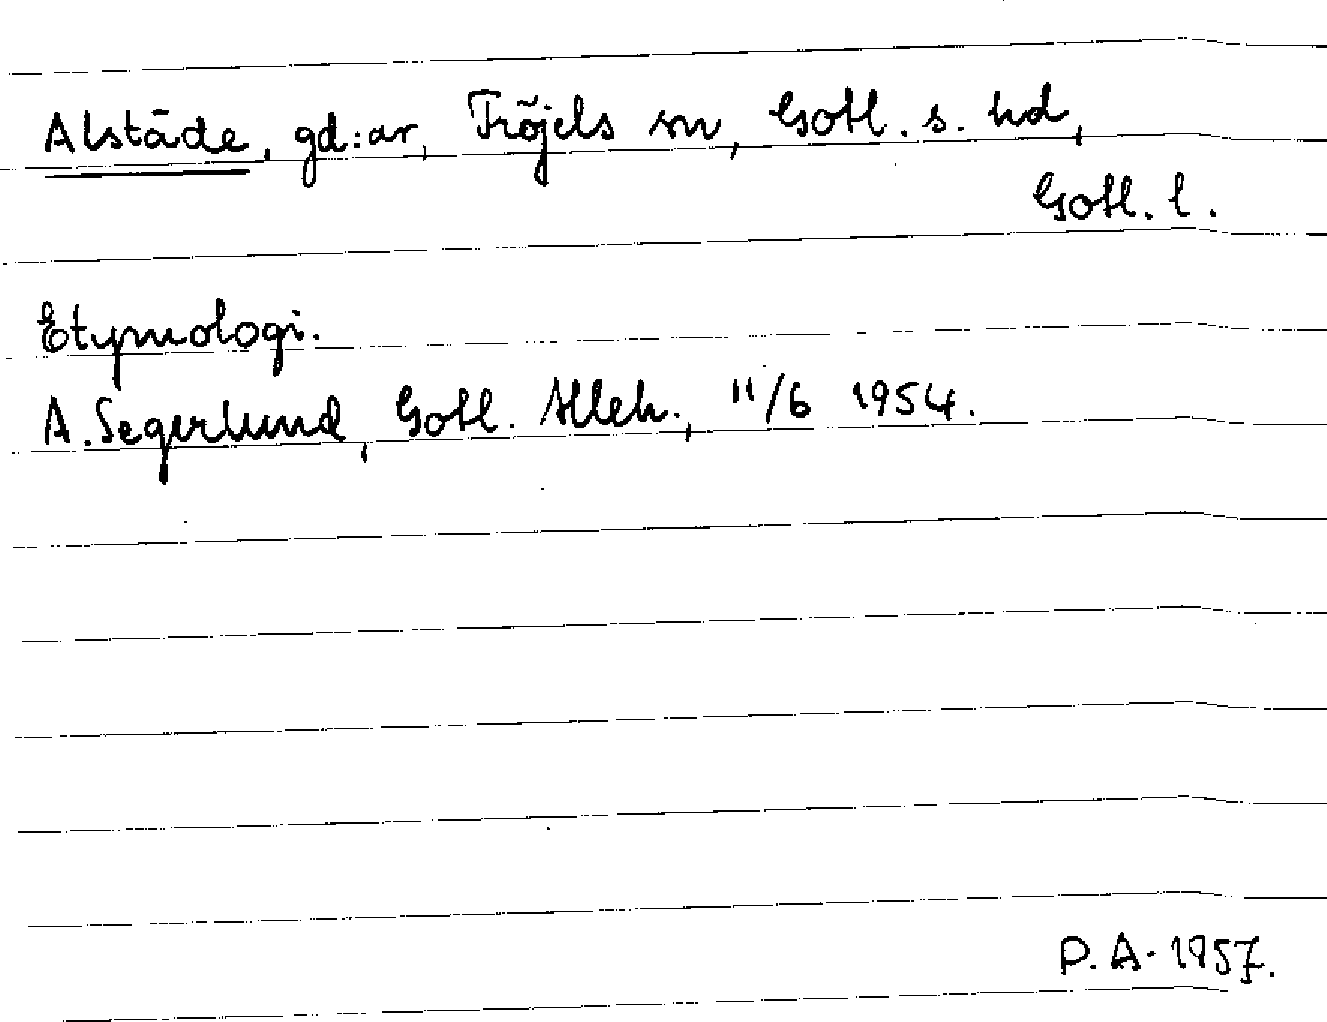 Alstäde, gd:ar, Fröjels sn, Gotl. s. hd,
Gotl. l.
Etymologi.
A. Segerlund, Gotl. Alleh., 11/6 1954.
P. A. 1957.